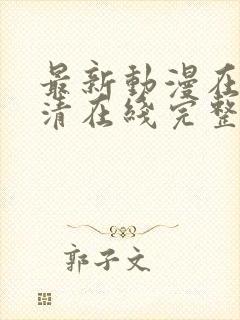 最新動漫在
清在綫完整
郭子文